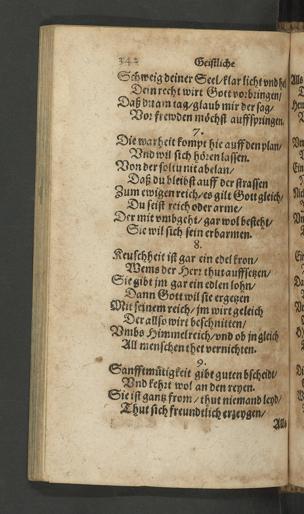 342 Geistliche
Schweig deiner Seel/ klar licht vnd hel
Dein recht wirt Gott vorbringen/
Daß du am tag/ glaub mir der sag/
Vor frewden möchst auffspringen.
7.
Die warheit kompt hie auff den plan/
Vnd wil sich hören lassen.
Von der soltu nit abelan/
Daß du bleibst auff der strassen
Zum ewigen reich/ es gilt Gott gleich/
Du seist reich oder arme/
Der mit vmbgeht/ gar wol besteht/
Sie wil sich sein erbarmen.
8.
Keuschheit ist gar ein edel kron/
Wems der Herr thut auffsetzen/
Sie gibt jm gar ein edlen lohn/
Dann Gott wil sie ergetzen
Mit seinem reich/ jm wirt geleich
Der allso wirt beschnitten/
Vmbs Himmelreich/ vnd ob jn gleich
All menschen thet vernichten.
9.
Sanfftmütigkeit gibt guten bscheidt/
Vnd kehrt wol an den reyen.
Sie ist gantz from/ thut niemand leyd/
Thut sich freundtlich erzeygen/